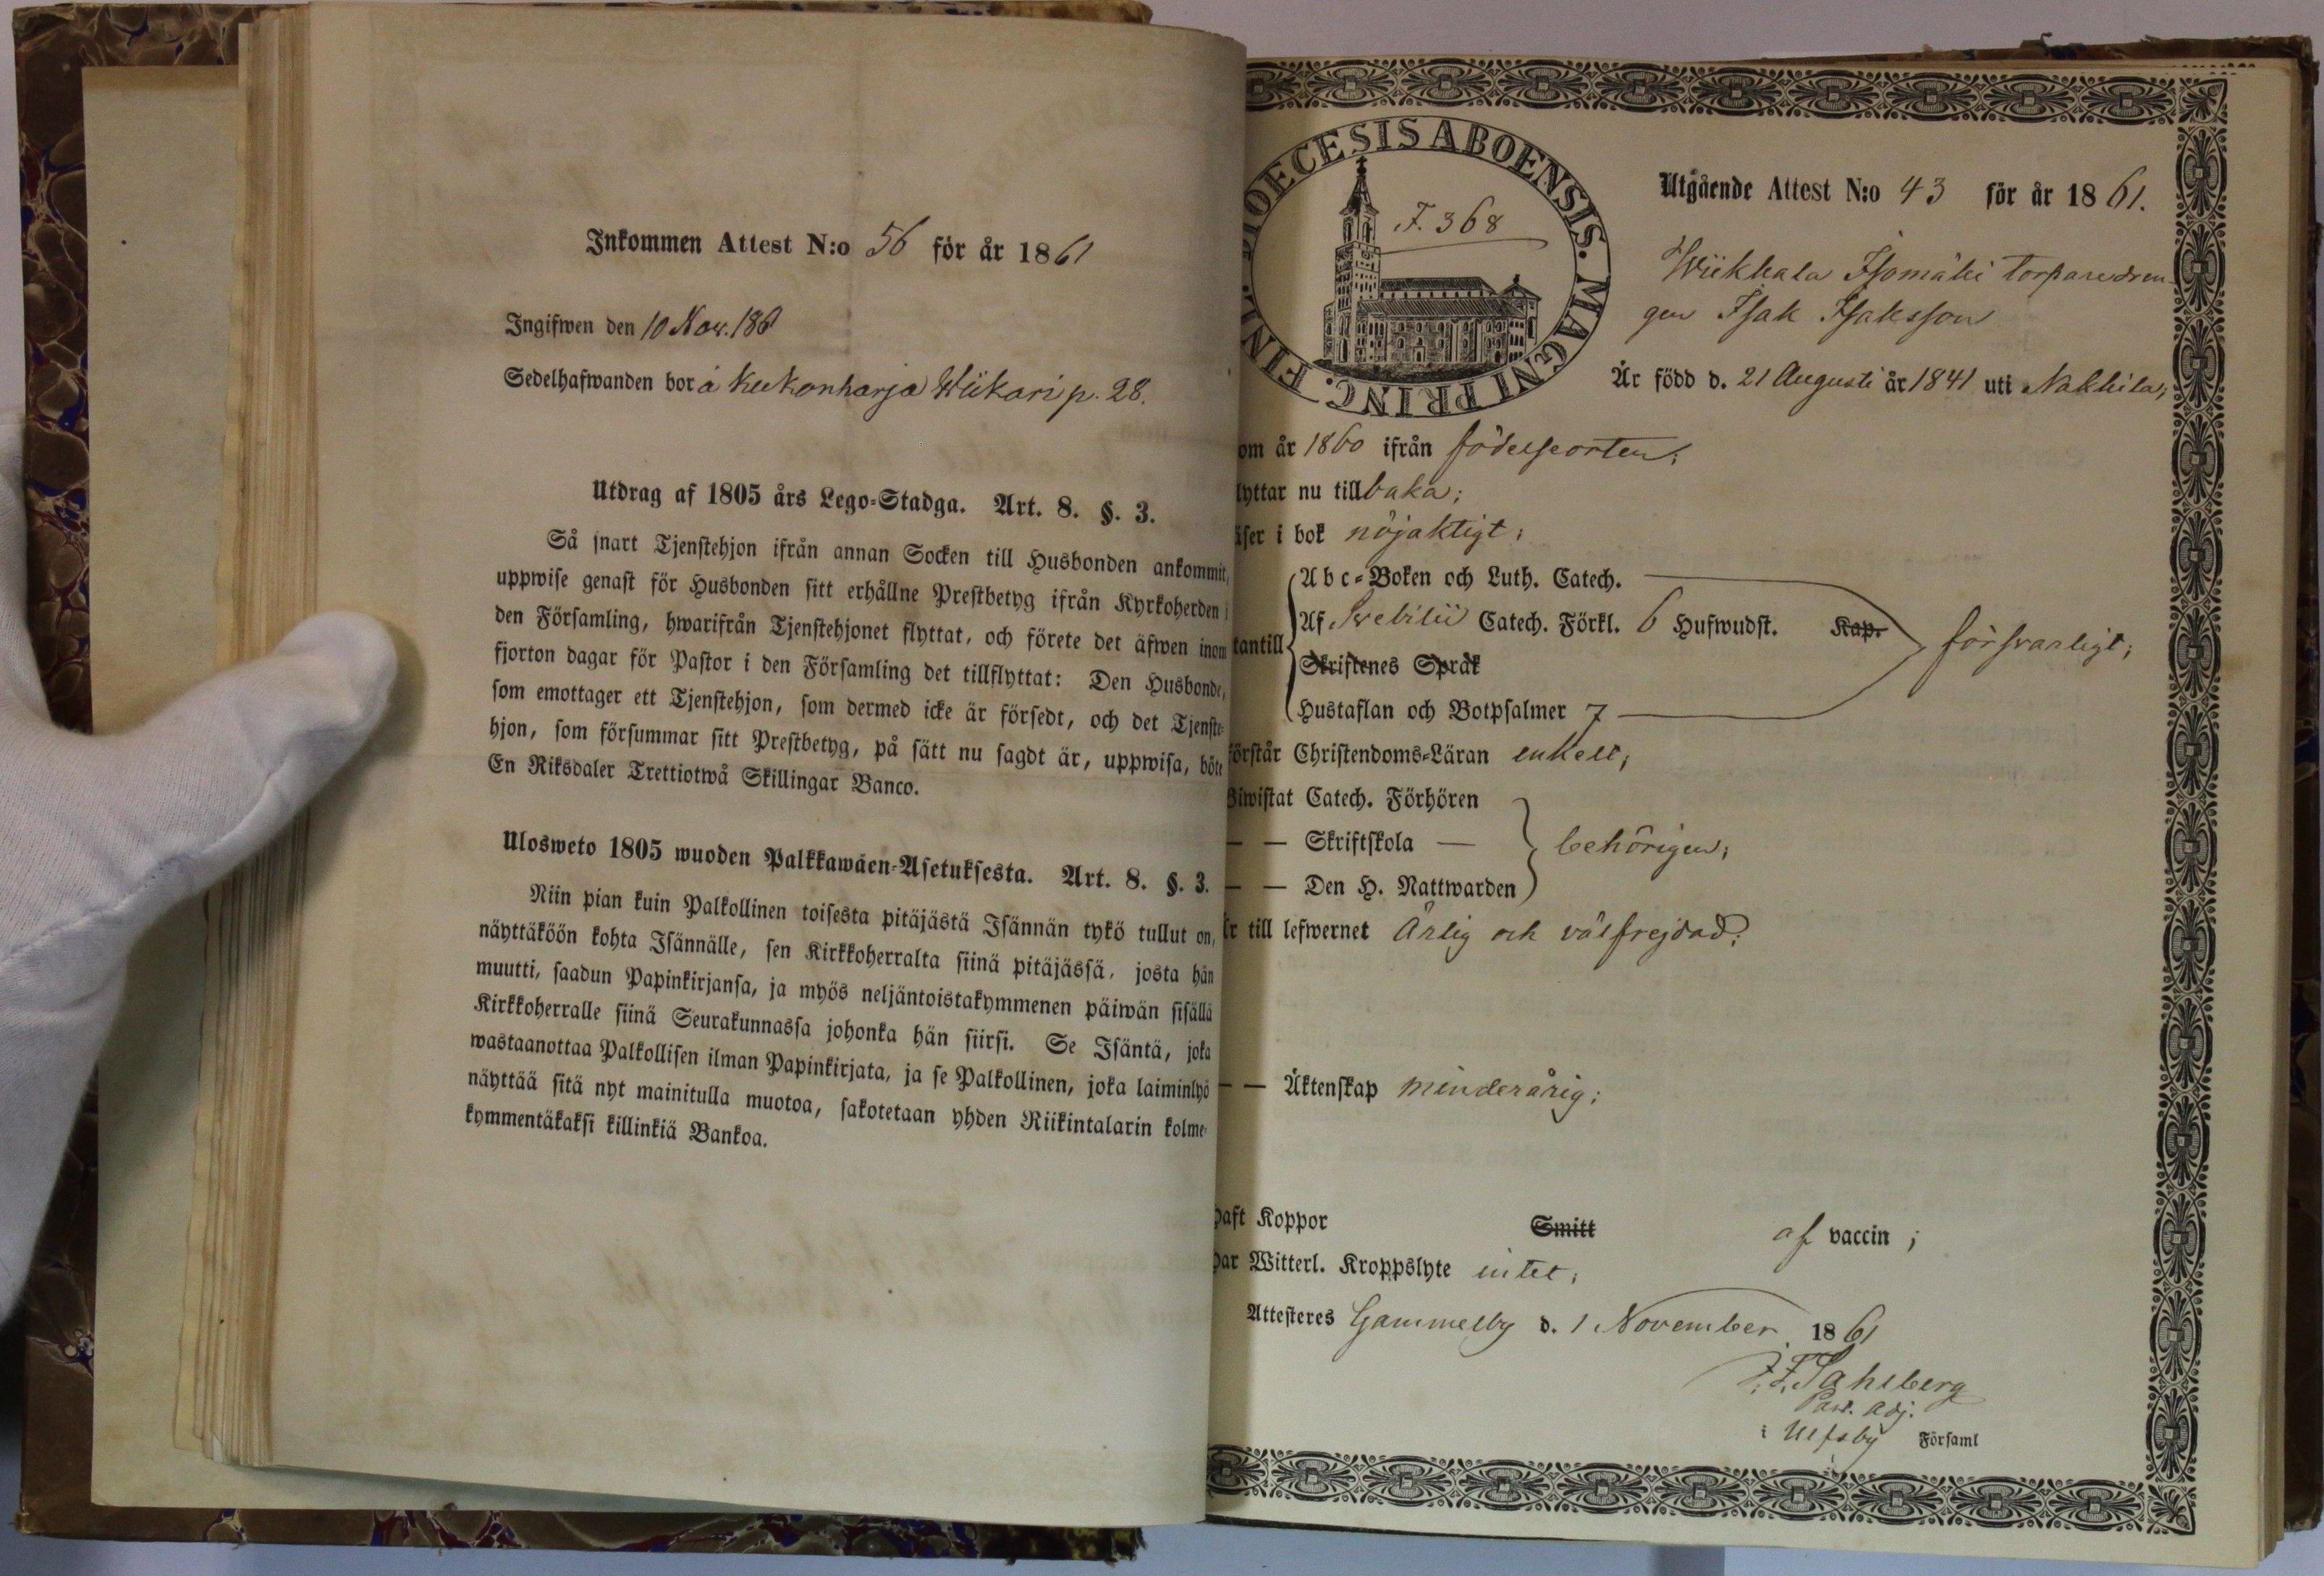 Inkommen Attest N:o 56 för år 1861
Ingifwen den 10 Nov. 186
Sedelhafwanden bor å Kukonharja Wiikari p. 28.
Utdrag af 1805 års Lego-Stadga. Art. 8. §. 3.
Så snart Tjenstehjon ifrån annan Socken till Husbonden ankommit,
uppwise genast för Husbonden sitt erhållne Prestbetyg ifrån Kyrkoherden i
den Församling, hwarifrån Tjenstehjonet flyttat, och förete det äfwen inom
fjorton dagar för Pastor i den Församling det tillflyttat: Den Husbonde,
som emottager ett Tjenstehjon, som dermed icke är försedt, och det Tjenste-
hjon, som försummar sitt Prestbetyg, på sätt nu sagdt är, uppwisa, böte
En Riksdaler Trettiotwå Skillingar Banco.
Ulosweto 1805 wuoden Palkkawäen-Asetuksesta. Art. 8. §. 3.
Niin pian kuin Palkollinen toisesta pitäjästä Isännän tykö tullut on,
näyttäköön kohta Isännälle, sen Kirkkoherralta siinä pitäjässä, josta hän
muutti, saadun Papinkirjansa, ja myös neljäntoistakymmenen päiwän sisällä
Kirkkoherralle siinä Seurakunnassa johonka hän siirsi. Se Isäntä, joka
wastaanottaa Palkollisen ilman Papinkirjata, ja se Palkollinen, joka laiminlyö
näyttää sitä nyt mainitulla muotoa, sakotetaan yhden Riikintalarin kolme-
kymmentäkaksi killinkiä Bankoa.
DIOECESIS ABOENSIS. MAGNI PRINC. FINL.
F. 368
Utgående Attest N:o 43 för år 1861.
Wiikkala Isomäki torparedren-
gen Isak Isaksson
Är född d. 21 Augusti år 1841 uti Nakkila;
om år 1860 ifrån födelseorten;
lyttar nu tillbaka;
äser i bok nöjaktigt;
Abc-Boken och Luth. Catech.
Af Svebilii Catech. Förkl. 6 Hufwudst. Kap. försvarligt;
tantill
Skriftenes Språk
Hustaflan och Botpsalmer 7
örstår Christendoms-Läran enkelt;
Biwistat Catech. Förhören
— — Skriftskola — behörigen;
— — Den H. Nattwarden
Är till lefwernet Ärlig och välfrejdad;
— — Äktenskap minderårig;
haft Koppor Smitt af vaccin;
har Witterl. Kroppslyte intet;
Attesteres Gammelby d. 1 November 1861
F. Sahlberg
Past. adj.
i Ulfsby Församl